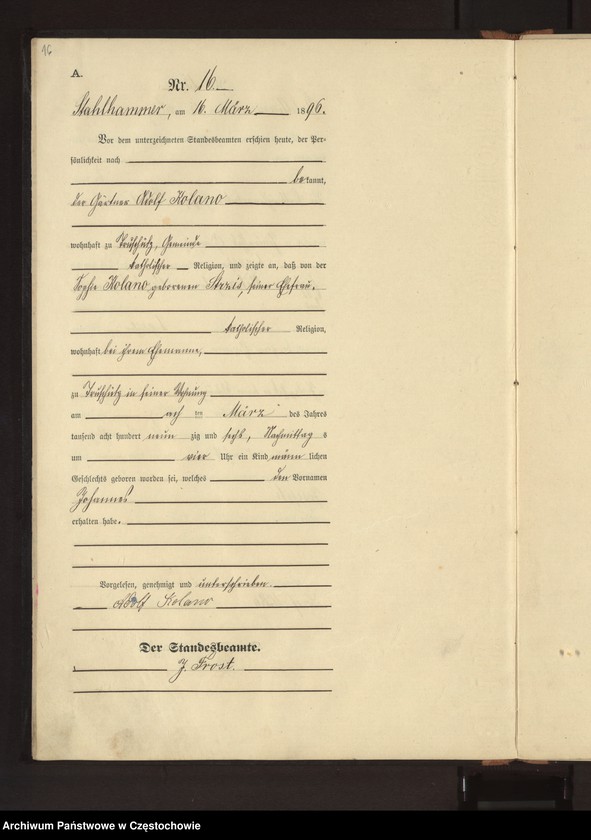 16
A.
Nr. 16.
Stahlhammer, am 16. März 1896.
Vor dem unterzeichneten Standesbeamten erschien heute, der Per-
sönlichkeit nach
bekannt,
der Gärtner Adolf Kolano
wohnhaft zu Truschütz, Gemeinde
katholischer Religion, und zeigte an, daß von der
Sophie Kolano geborenen seiner Ehefrau.
katholischer Religion,
wohnhaft bei ihrem Ehemanne,
zu Truschütz in seiner Wohnung
am acht ten März des Jahres
tausend acht hundert neun zig und sechs, Nachmittag s
um vier Uhr ein Kind männ lichen
Geschlechts geboren worden sei, welches den Vornamen
Johannes
erhalten habe.
Vorgelesen, genehmigt und unterschrieben.
Adolf Kolano
Der Standesbeamte.
J. Frost.
Archiwum Państwowe w Częstochowie